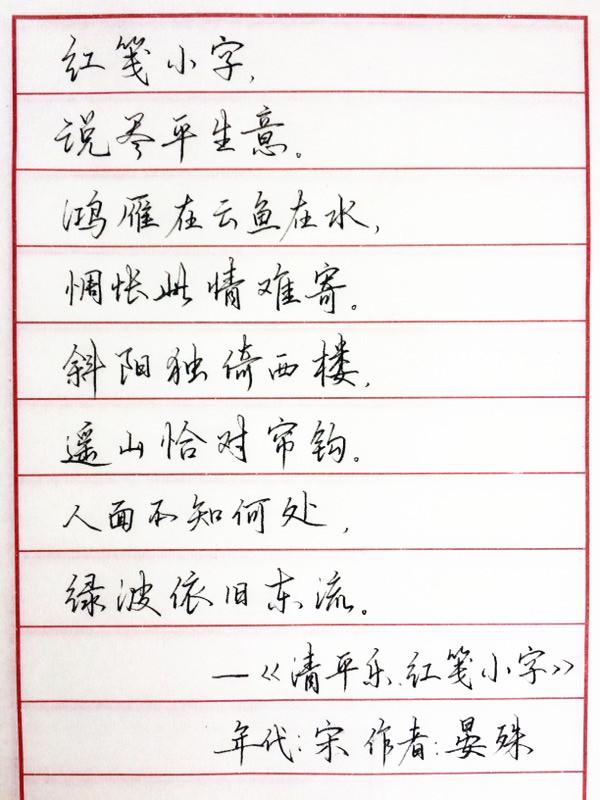 红笺小字,
说尽平生意。
鸿雁在云鱼在水,
惆怅此情难寄。
斜阳独倚西楼,
遥山恰对帘钩。
人面不知何处,
绿波依旧东流。
—《清平乐.红笺小字》
年代:宋 作者:晏殊